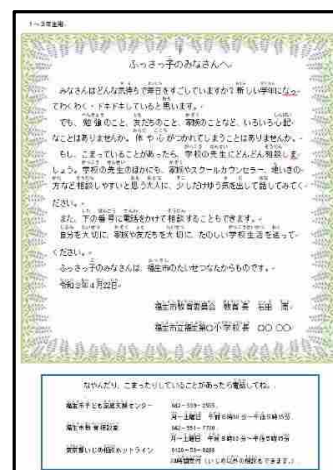 1～3年生用
ふっさっ子のみなさんへ
みなさんはどんな気持ちで毎日をすごしていますか？新しい学年になっ
てわくわく・ドキドキしていると思います。
でも、勉強のこと、友だちのこと、家族のことなど、いろいろ心配
なことはありませんか。体や心がつかれてしまうことはありませんか。
もし、こまっていることがあったら、学校の先生にどんどん相談しま
しょう。学校の先生のほかにも、家族やスクールカウンセラー、地いきの
方など相談しやすいと思う大人に、少しだけゆう気を出して話してみてく
ださい。
また、下の番号に電話をかけて相談することもできます。
自分を大切に、家族や友だちを大切に、たのしい学校生活を送って
ください。
ふっさっ子のみなさんは、福生市のたいせつなたからものです。
令和2年4月22日
福生市教育委員会 教育長 石田 周
福生市立福生第○小学校長 ○○ ○○
なやんだり、こまったりしていることがあったら電話してね。
福生市子ども家庭支援センター
月～土曜日
福生市教育相談室
月～土曜日
東京都いじめ相談ホットライン
24時間受付（いじめ以外の相談もできます。）